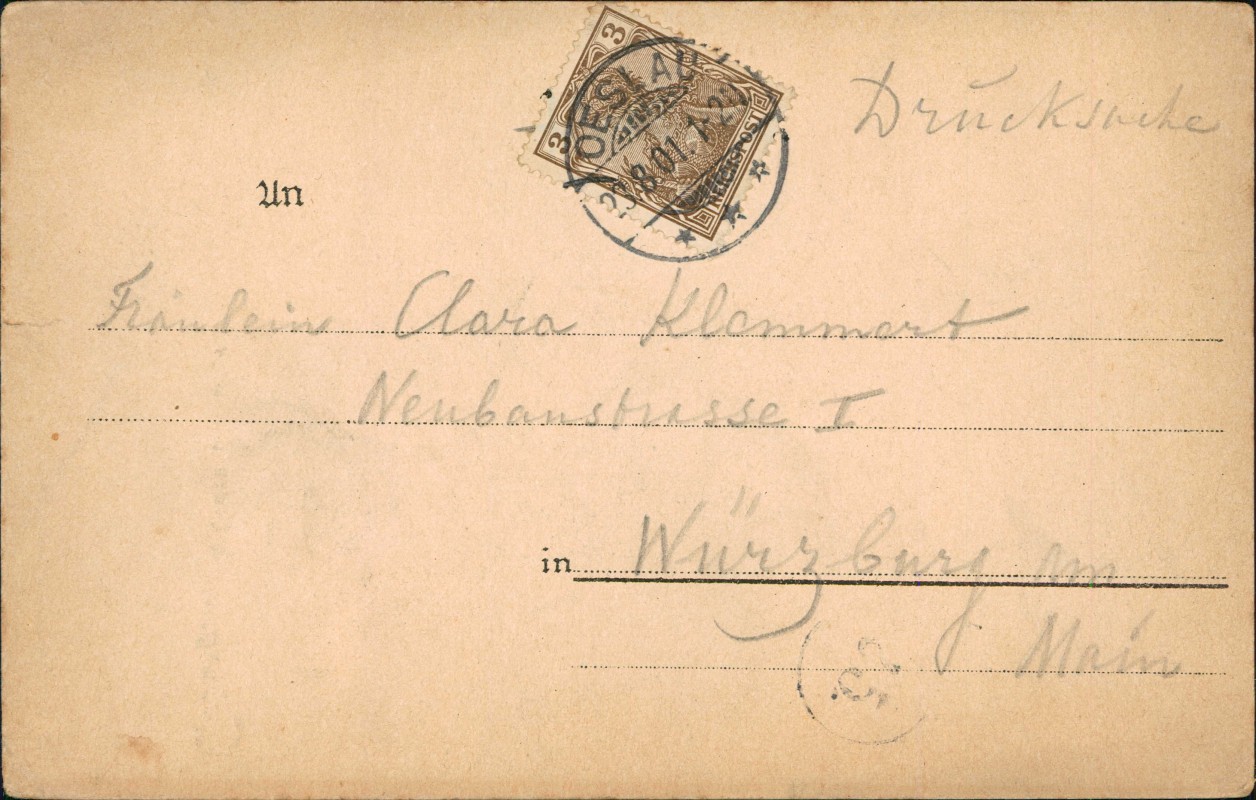 3
3
REICHSPOST
OESLAU
23.8.01. 1-2
Drucksache
An
Fräulein Clara Klemmert
Neubaustrasse I
in Würzburg am
Main